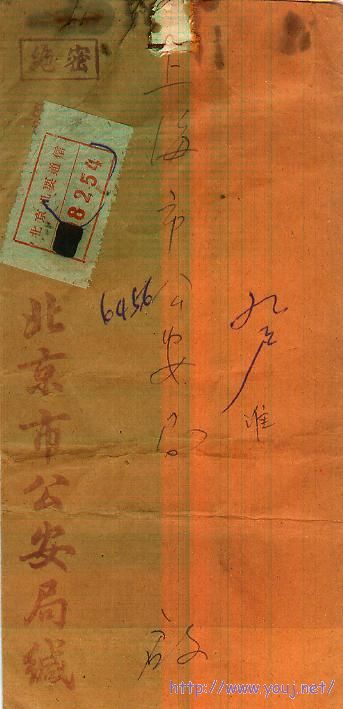 绝密
北京机要通信
8254
上海市公安局
启
6456
北京市公安局缄
http://www.youj.net/